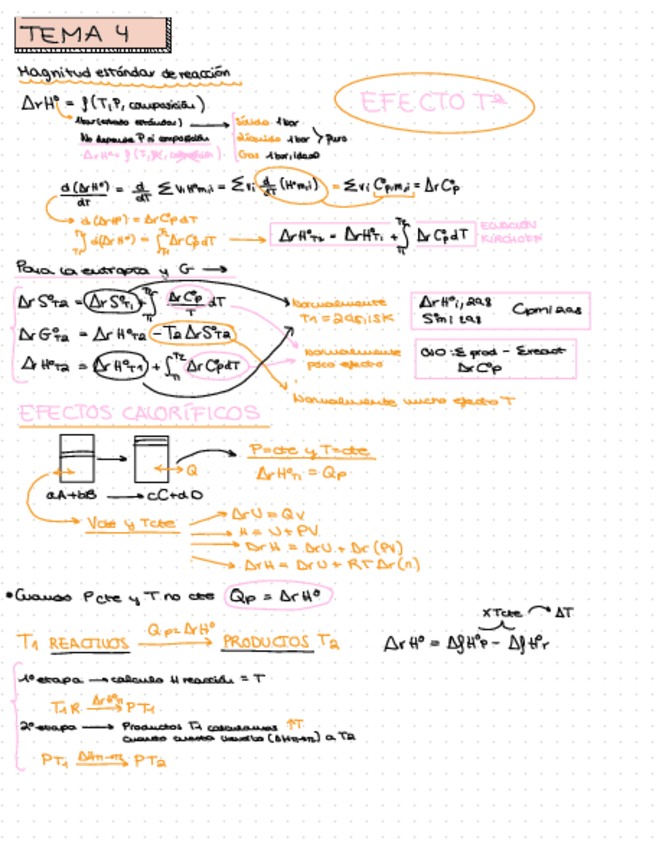 TEMA 4
Magnitud estándar de reacción
ΔrHº = f(T, P, composición)
EFECTO Tª
1bar (estado estándar)
Sólido 1bar
No depende P ni composición
Líquido 1bar > puro
ΔrHº = f(T, P, composición)
Gas 1bar, ideal
d(ΔrHº)/dT = d/dT Σ νi Hºm,i = Σ νi d/dT (Hºm,i) = Σ νi Cºp,m,i = ΔrCºp
d(ΔrHº) = ΔrCºp dT
∫T1T2 d(ΔrHº) = ∫T1T2 ΔrCºp dT → ΔrHºT2 = ΔrHºT1 + ∫T1T2 ΔrCºp dT
ECUACIÓN KIRCHOFF
Para la entropía y G →
ΔrSºT2 = ΔrSºT1 + ∫T1T2 ΔrCºp/T dT
Normalmente T1 = 298,15K
ΔrGºT2 = ΔrHºT2 - T2 ΔrSºT2
ΔrHºT2 = ΔrHºT1 + ∫T1T2 ΔrCºp dT
Normalmente poco efecto
Σprod - Σreact
ΔrCºp
Normalmente mucho efecto T
EFECTOS CALORÍFICOS
P=cte y T=cte
Q
ΔrHºT1 = Qp
aA+bB → cC+dD
Vcte y Tcte
ΔrU = Qv
H = U + PV
ΔrH = ΔrU + Δr(PV)
ΔrH = ΔrU + RT Δr(n)
• Cuando P cte y T no cte Qp = ΔrHº
xTcte → ΔT
T1 REACTIVOS Qp=ΔrHº → PRODUCTOS T2
ΔrHº = ΔfHºp - ΔfHºr
1º etapa → calculo H reacción = T
T1 R ΔrHºT1 → P T1
2º etapa → Productos T1 calculamos ↑T
cuando cuesta (ΔHT1→T2) a T2
P T1 ΔHT1→T2 → P T2